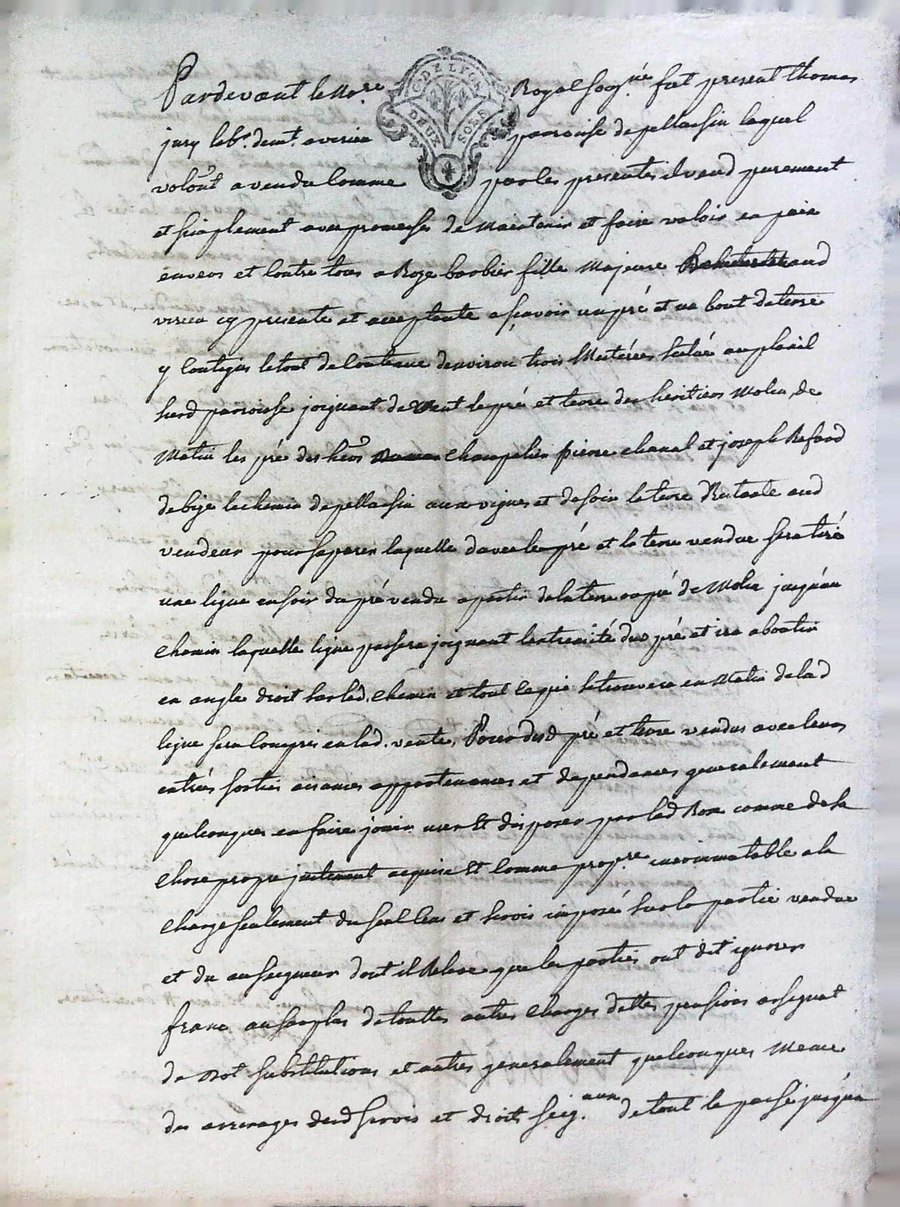 Pardevant le No.re Royal Soug.né fut present thomas
G. DE LYON
DEUX SOLS
jury lab.r demt. a virieu paroisse de pellussin lequel
volont. a vendu comme par les presentes il vend purement
et simplement avec promesses de maintenir et faire valoir en paix
envers et contre tous a Roze barbier fille majeure aud
virieu cy presente et acceptante asçavoir un pré et un bout de terre
y contigus le tout de contenue d'environ trois Meterées scitué au planil
surd paroisse joignant de vent le pré et terre des heritiers Molin, de
Matin les pré des hers. champalier pierre chanal et joseph
de bize le chemin de pellussin aux vignes et de soir la terre Restante aud
vendeur pour separer laquelle d'avec le pré et la terre vendue sera tiré
une ligne en soir du pré vendu a partir de la terre ou pré de Molin jusqu'au
chemin laquelle ligne passera joignant l'extremité dud pré et ira aboutir
en angle droit sur led. chemin et tout ce qui se trouvera en Matin de lad
ligne sera compris en lad. vente, Pour desd pré et terre vendus avec leurs
entrées sorties aisances appartenances et dependances generalement
quelconques en faire jouir user Et disposer par lad Roze comme de sa
chose propre justement acquise Et comme propre.re incommutable a la
charge seulement du seul Cens et servis imposé sur la partie vendue
et du au seigneur dont il Releve que les parties ont dit ignorer
franc au surplus de touttes autres charges dettes pensions assignat
de Dot substitutions et autres generalement quelconques Meme
des arrerages desd servis et droits seig.aux de tout le passé jusqu'a